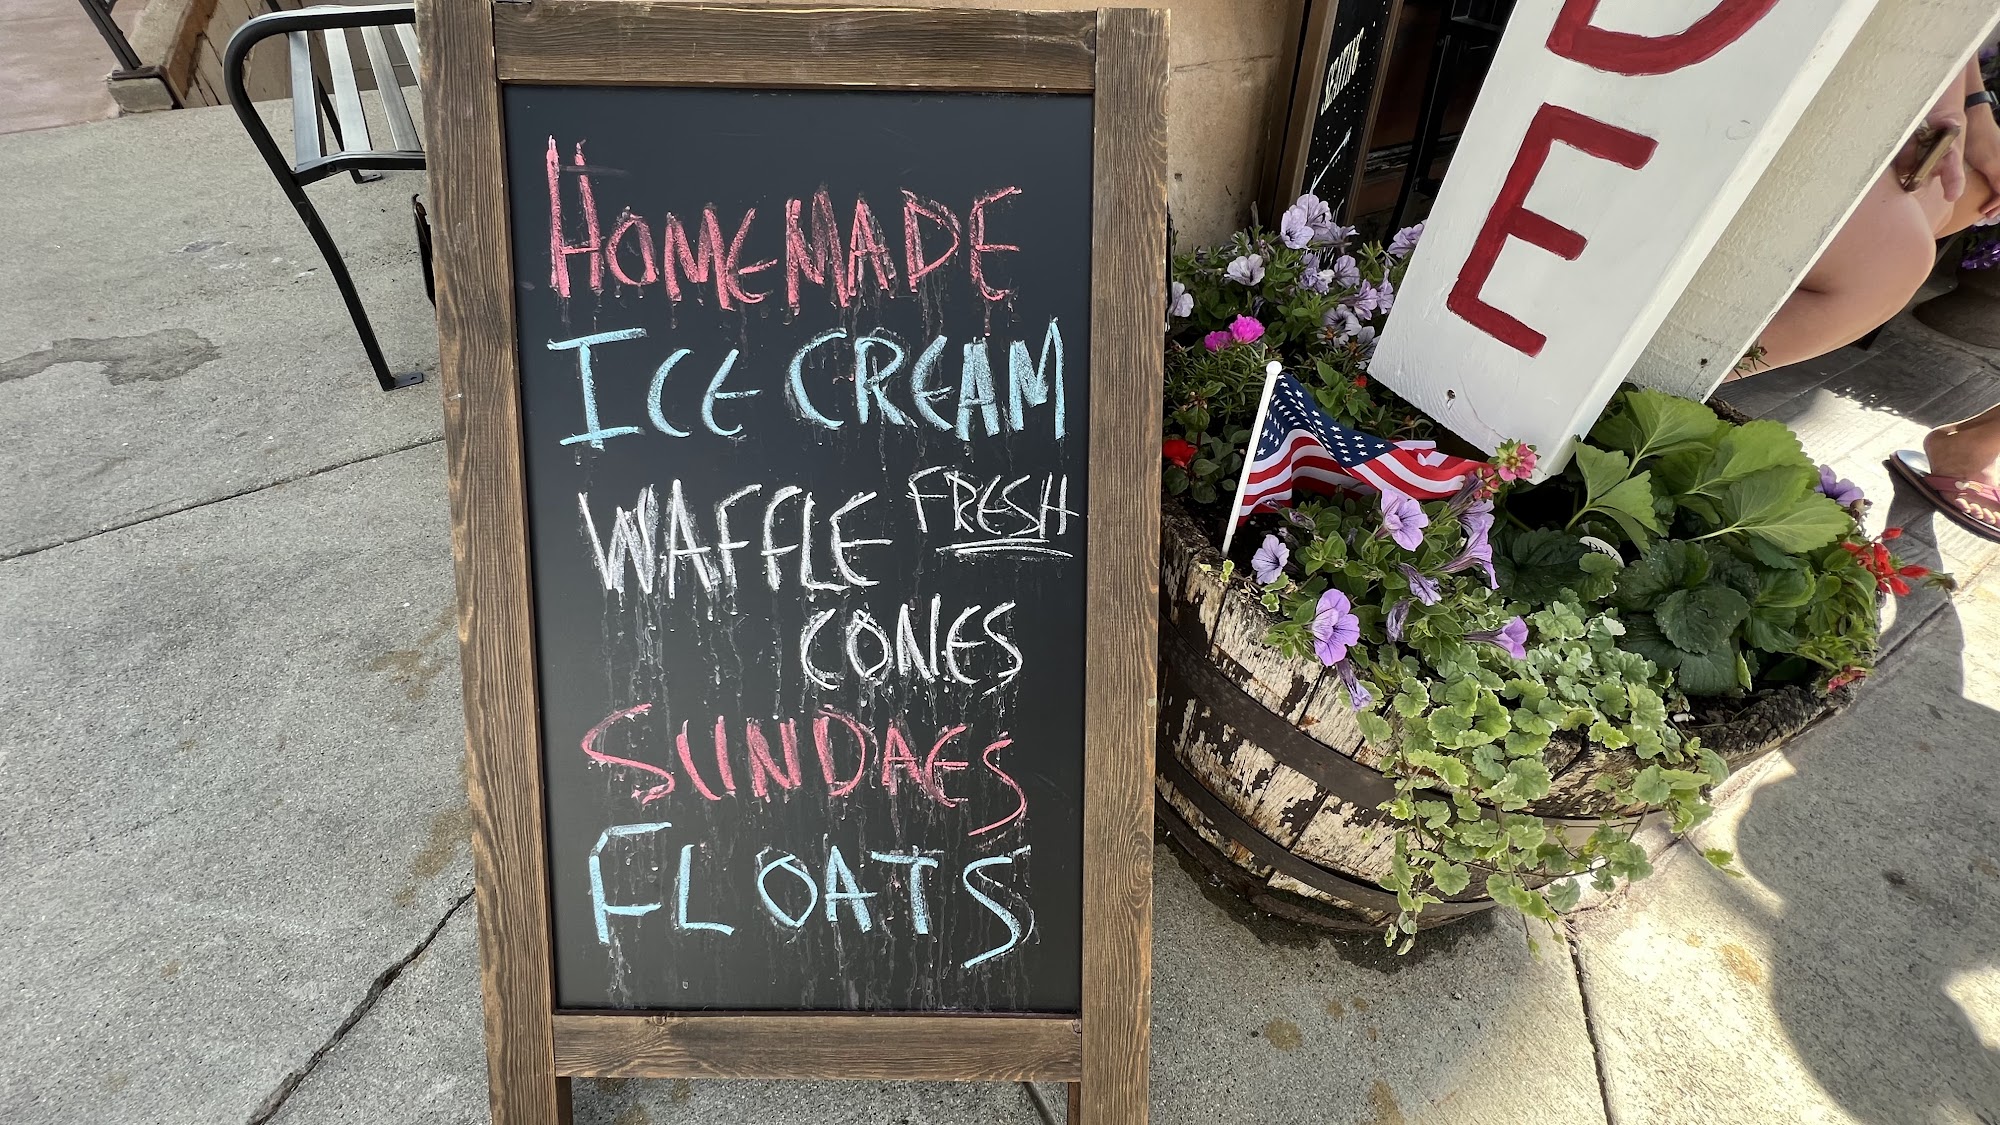 HOMEMADE
ICE CREAM
WAFFLE FRESH
CONES
SUNDAES
FLOATS
SEATING
DE